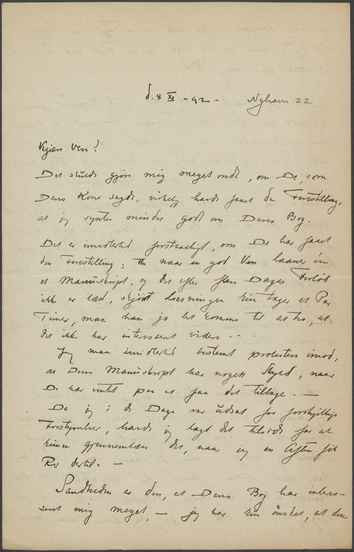 d. 8 XI - 92 - Nyhavn 22
Kjære Ven!
Det vilde gjøre mig meget ondt, om De, som
Deres Kone sagde, virkelig havde faaet den Forestilling,
at jeg syntes mindre godt om Deres Bog.
Det er imidlertid forstaaeligt, om De har faaet
den Forestilling; thi naar en god Ven laaner én
et Manuskript, og det efter flere Dages Forløb
ikke er læst, skjønt Læsningen kun tager et Par
Timer, maa han jo let komme til at tro, at
det ikke har interesseret videre. -
Jeg maa imidlertid bestemt protestere imod,
at Deres Manuskript har noget Skyld, naar
De har ventet paa at faa det tilbage. -
Da jeg i de Dage var udsat for forskjellige
Forstyrrelser, havde jeg lagt det tilside for at
kunne gjennemlæse det, naar jeg en Aften fik
Ro dertil. -
Sandheden er den, at Deres Bog har interes-
seret mig meget, - jeg har kun ønsket, at den